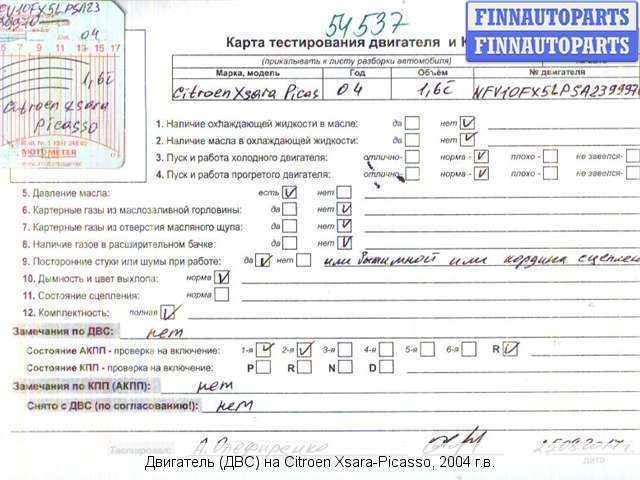 54537
FINNAUTOPARTS
FINNAUTOPARTS
Карта тестирования двигателя и К
(прикалывать к листу разборки автомобиля)
Марка, модель Год Объём № двигателя
Citroen Xsara Picas 04 1,6i NFV10FX5LPSA239997
04
5 7 9 11 13 15 17
1,6i
Citroen Xsara
Picasso
MOTOMETER
1. Наличие охлаждающей жидкости в масле: да нет
2. Наличие масла в охлаждающей жидкости: да нет
3. Пуск и работа холодного двигателя: отлично- норма - плохо - не завелся-
4. Пуск и работа прогретого двигателя: отлично- норма - плохо - не завелся-
5. Давление масла: есть нет
6. Картерные газы из маслозаливной горловины: да нет
7. Картерные газы из отверстия масляного щупа: да нет
8. Наличие газов в расширительном бачке: да нет
9. Посторонние стуки или шумы при работе: да нет или или кордина сцеплен
10. Дымность и цвет выхлопа: норма
11. Состояние сцепления: норма
12. Комплектность: полная
Замечания по ДВС: нет
Состояние АКПП - проверка на включение: 1-я 2-я 3-я 4-я 5-я 6-я R
Состояние КПП - проверка на включение: P R N D
Замечания по КПП (АКПП): нет
Снято с ДВС (по согласованию!): нет
Тестировал: А. Олефиренко 25.08.2017г.
дата
Двигатель (ДВС) на Citroen Xsara-Picasso, 2004 г.в.